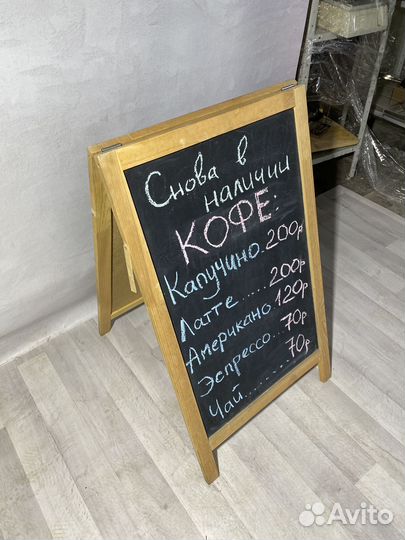 Снова в
наличии
КОФЕ:
Капучино.200р
Латте.....200р
Американо 120р
Эспрессо...70р
Чай.......70р
Avito